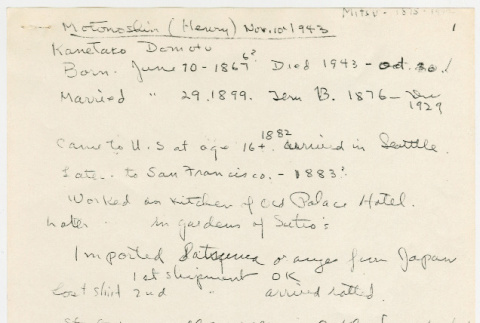 Mitsu -
1
Motonoshin (Henry) Nov. 10th 1943
Kanetaro Domoto
Born. June 10 - 1867 6? Died 1943 - oct. 30!
Married " 29. 1899. B. 1876 - Dec 1929
Came to U.S at age 16+. 1882 arrived in Seattle.
Later. to San Francisco. - 1883?
Worked as kitchen of Old Palace Hotel.
Later. in gardens of Sutro's
Imported Satsuma oranges from Japan
1st shipment OK
2nd " arrived rotted.